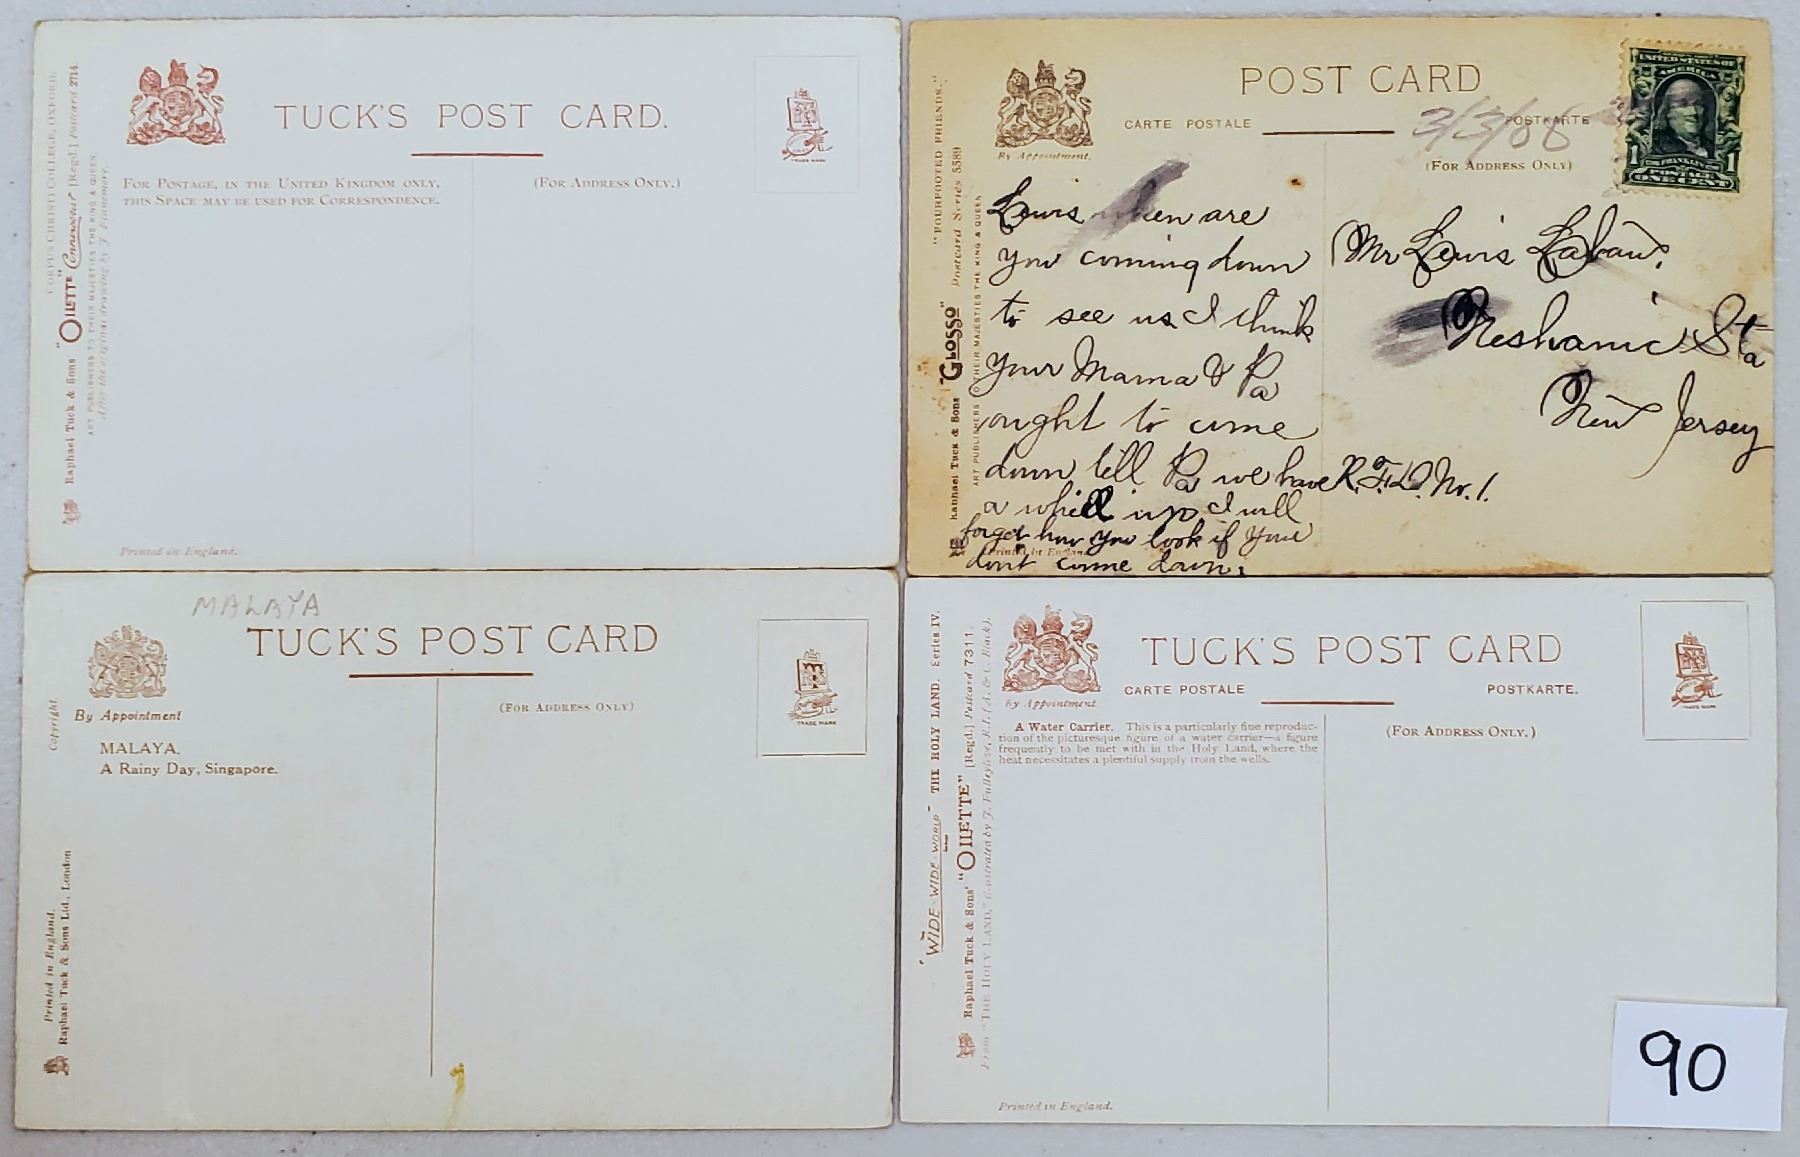 CORPUS CHRISTI COLLEGE, OXFORD.
Raphael Tuck & Sons' "OILETTE" Connoisseur [Regd.] Postcard 2714.
ART PUBLISHERS TO THEIR MAJESTIES THE KING & QUEEN.
After the original drawing by J. Finnemore.
TUCK'S POST CARD.
FOR POSTAGE, IN THE UNITED KINGDOM ONLY,
THIS SPACE MAY BE USED FOR CORRESPONDENCE.
(FOR ADDRESS ONLY.)
TRADE MARK
Printed in England.
"FOURFOOTED FRIENDS."
Raphael Tuck & Sons' "GLOSSO" Postcard Series 5589
ART PUBLISHERS TO THEIR MAJESTIES THE KING & QUEEN
By Appointment.
POST CARD
CARTE POSTALE
POSTKARTE
3/3/08
(FOR ADDRESS ONLY)
UNITED STATES OF
AMERICA
FRANKLIN
1 POSTAGE 1
ONE CENT
Lewis when are
you coming down
to see us I think
your Mama & Pa
ought to come
down tell Pa we have
a whell up I will
forget how you look if you
dont come down.
Printed in England
Mr Lewis Labaw.
Neshanic Sta
New Jersey
R.F.D. No. 1.
MALAYA
TUCK'S POST CARD
By Appointment
(FOR ADDRESS ONLY)
TRADE MARK
Copyright.
MALAYA.
A Rainy Day, Singapore.
Printed in England.
Raphael Tuck & Sons Ltd., London
"WIDE-WIDE-WORLD" THE HOLY LAND. Series IV.
Raphael Tuck & Sons' "OILETTE" [Regd.] Postcard 7311.
From "THE HOLY LAND," illustrated by J. Fulleylove, R.I. (A. & C. Black).
By Appointment
TUCK'S POST CARD
CARTE POSTALE
POSTKARTE.
TRADE MARK
A Water Carrier. This is a particularly fine reproduc-
tion of the picturesque figure of a water carrier—a figure
frequently to be met with in the Holy Land, where the
heat necessitates a plentiful supply from the wells.
(FOR ADDRESS ONLY.)
Printed in England.
90